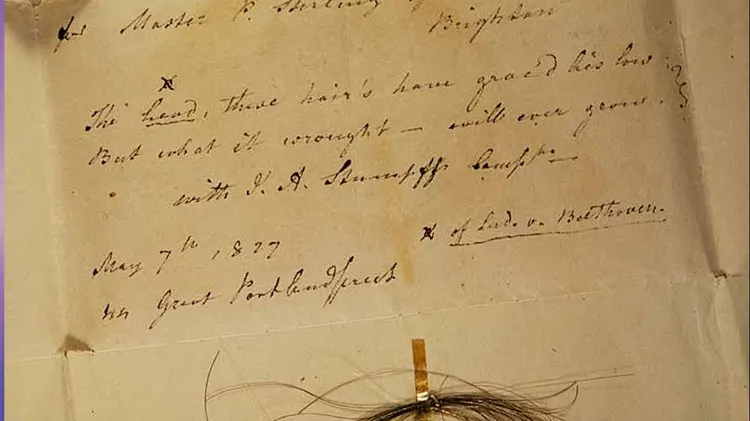 for Master P. Stirling
Brighton
x
The head, these hair's have grac'd lies low
But what it wrought — will ever grow.
with J. A. Stumpff's Compts —
May 7th, 1827
x of Lud. v. Beethoven.
44 Great Portland Street